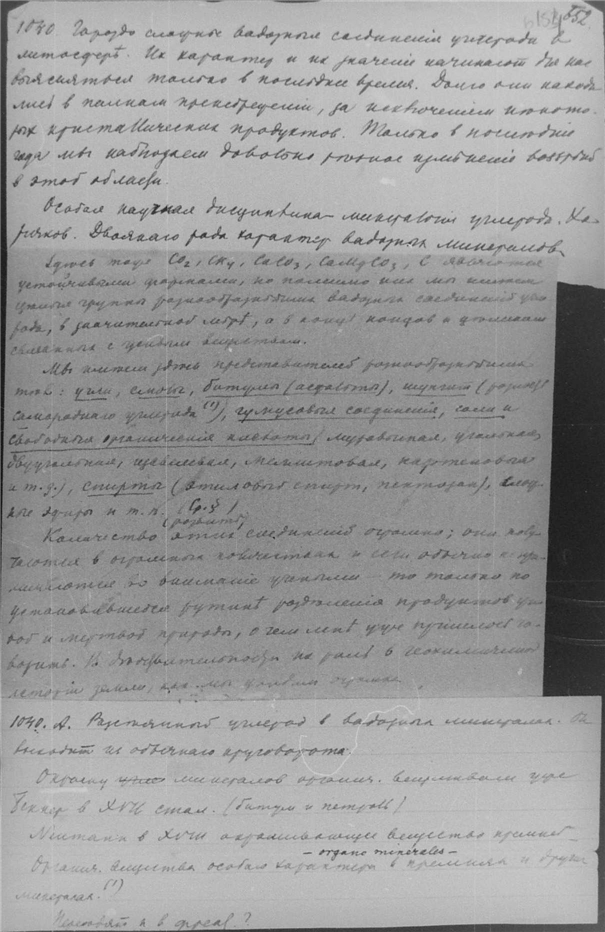 552
1040. Гораздо сложнее вадозныя соединенія углерода в
литосферѣ. Их характер и их значеніе начинают для нас
выясняться только в последнее время. Долго они находи
лись в полном пренебреженіи, за исключением некото-
рых кристаллических продуктов. Только в последніе
года мы наблюдаем довольно измѣненіе воззрѣній
в этой области.
Особая научная дисциплина минералогія углерода.
Двоякаго рода характер вадозных минералов
Здѣсь тоже CO2, CH4, CaCO3, CaMgCO3, C являются
устойчивыми формами, но помимо них мы имѣем
цѣлыя группы разнообразнѣйших вадозных соединеній угле
рода, в значительной мѣрѣ, а в конце концов и цѣликом
связанных с живым веществом.
Мы имѣем здѣсь представителей разнообразнѣйших
тѣл: угли, смолы, битумы (асфальты), шунгит (
самороднаго углерода (1)), гумусовыя соединенія, соли и
свободныя органическія кислоты (муравьиная, угольная,
двуугольная, щавелевая, меллитовая, нафтеновыя
и т.д.), спирты (этиловый спирт, пентозан), слож
ные эфиры и т.п. (Ср. §)
Количество этих соединеній огромно; они полу
чаются в огромных количествах и если обычно не при
нимаются во вниманіе учеными то только по
установившейся рутинѣ раздѣленія продуктов жи
вой и мертвой природы, о чем мнѣ уже пришлось го-
ворить. В дѣйствительности их роль в геохимической
исторіи земли, как мы увидим огромна
1040. А. Разсѣянный углерод в вадозных минералах. Он
выходит из обычнаго круговорота.
Окраску минералов органич. веществами уже
Беккер в XVII стол. (битум и петроль)
Neumann в XVIII окрашивающее вещество
- organo minérales -
Органич. вещества особаго характера в кремнях и других
минералах. (1)